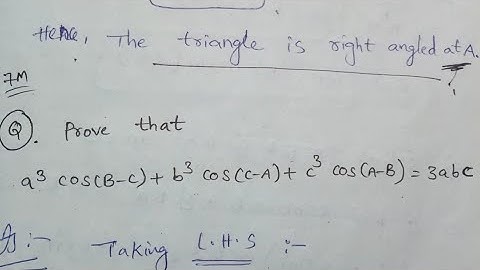 Hence, The triangle is right angled at A.
7M
Q. Prove that
a³ cos(B-C) + b³ cos(C-A) + c³ cos(A-B) = 3abc
A:- Taking L.H.S :-